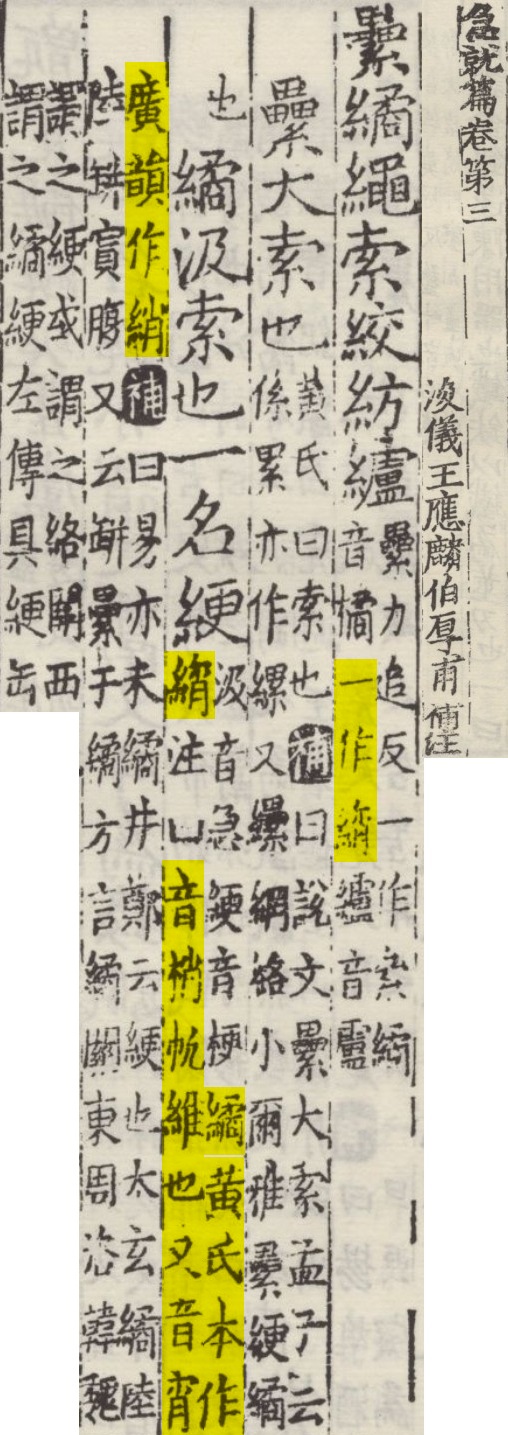 急就篇卷第三
浚儀王應麟伯厚甫補注
纍繘繩索絞紡纑
纍力追反一作絫繘
音橘一作纑音盧
纍大索也
黃氏曰索也補曰說文纍大索孟子云
係累亦作縲又纍綱絡小爾雅纍綆繘
也
繘汲索也一名綆
汲音急綆音梗繘黃氏本作
綃注凵音梢帆維也又音宵
廣韻作綃補曰易亦未繘井鄭云綆也太玄繘陸
陸缾寘腹又云缾纍于繘方言繘關東周洛韓魏
謂之綆或謂之絡關西
謂之繘綆左傳具綆缶